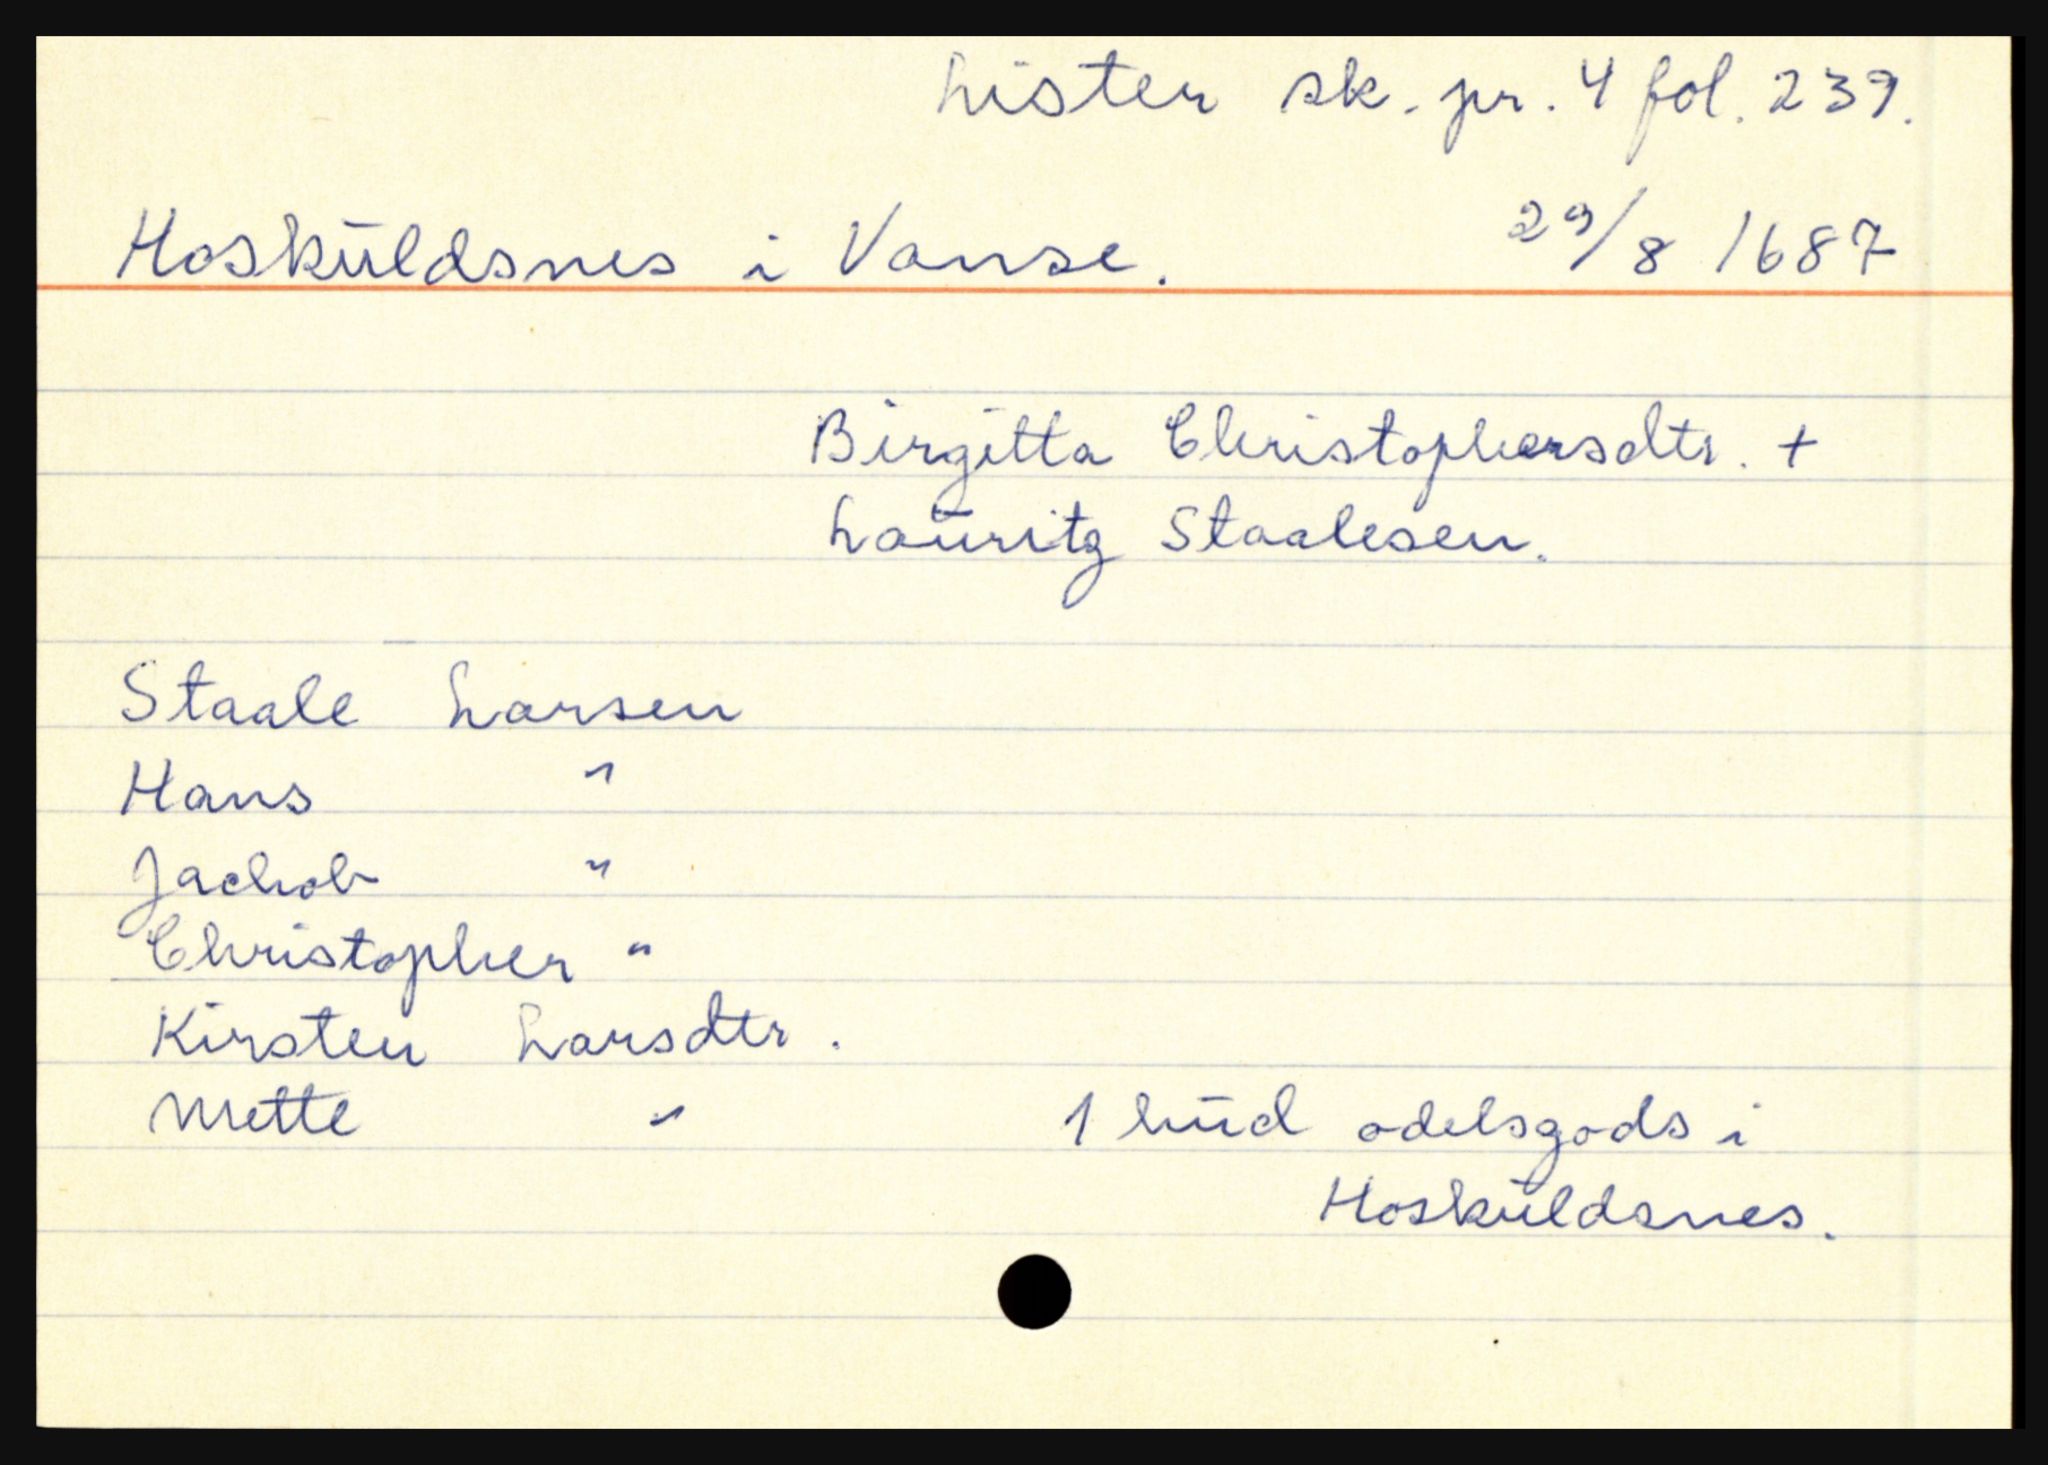 Lister sk. pr. 4 fol. 239.
Hoskuldsnes i Vanse. 29/8 1687
Birgitta Christophersdtr. +
Lauritz Staalesen.
Staale Larsen
Hans "
Jachob "
Christopher "
Kirsten Larsdtr.
Mette " 1 hud odelsgods i
Hoskuldsnes.